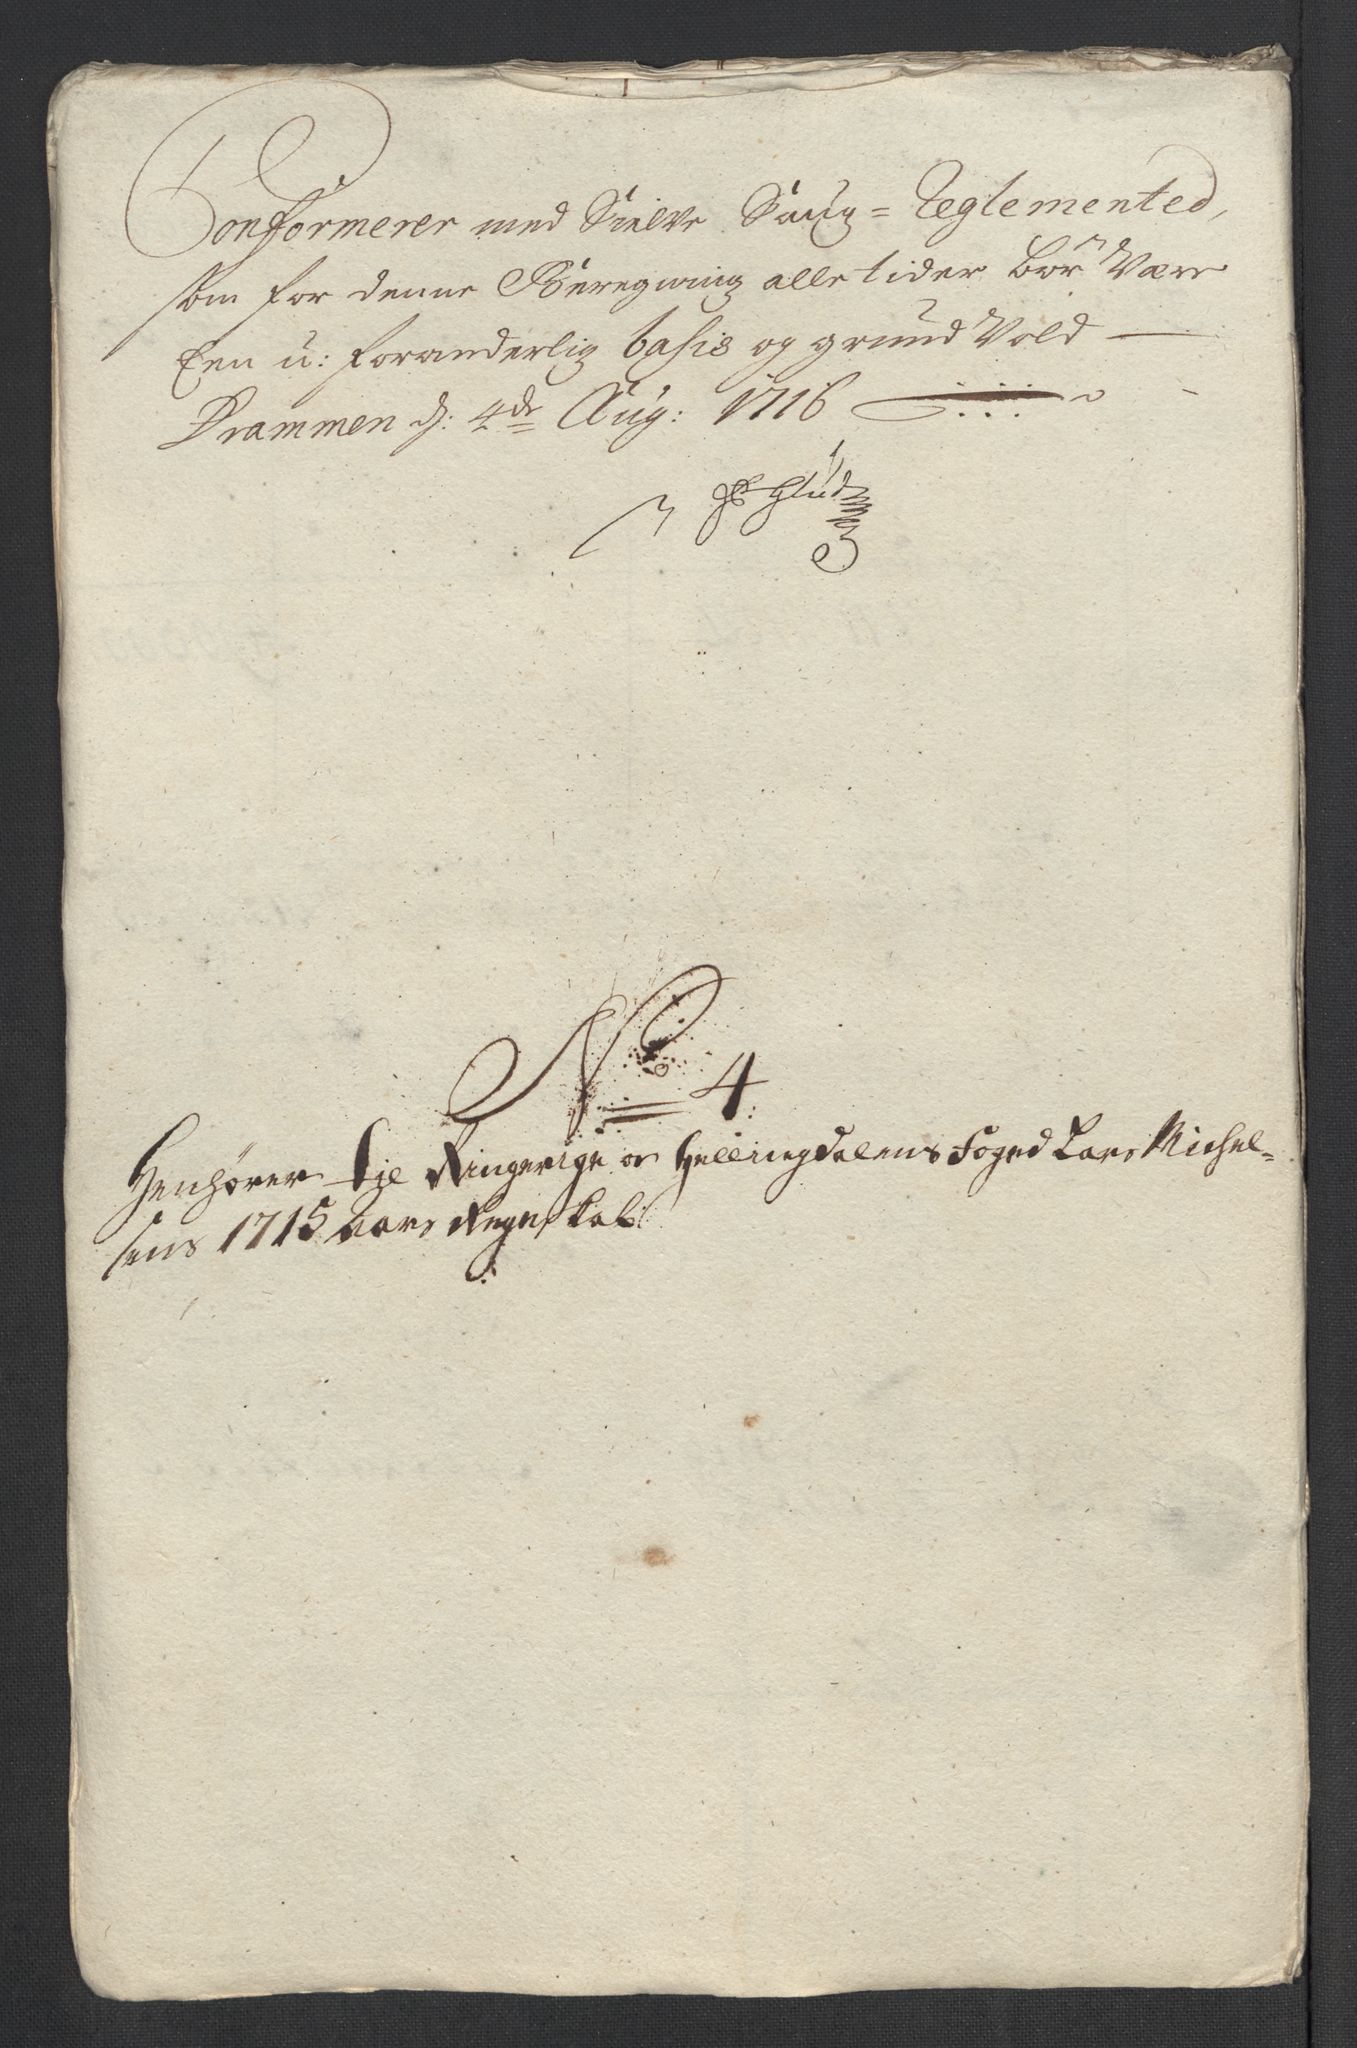 Conformerer med Sielve Saug= Reglemented,
som for denne Beregning alletider bör Være
Een u: foranderlig basis og grund Vold
Drammen d: 4de Aug: 1716
Glud
No 4
Henhörer til Ringerige og Hellingdalens Foged Lars Michel=
sens 1715 Aars Regnskab